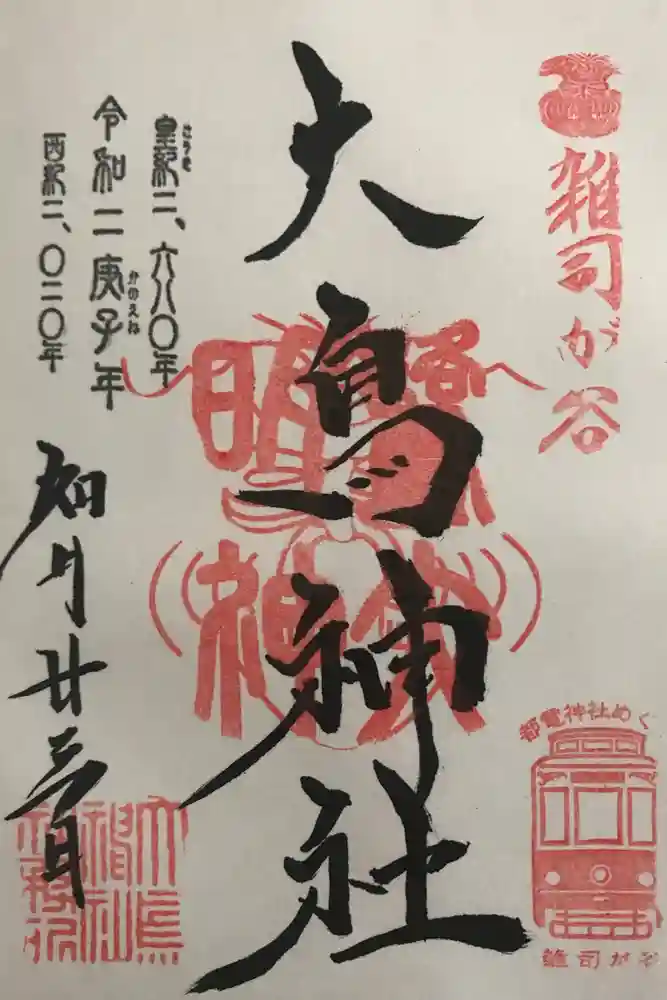 雑司が谷
大鳥神社
皇紀二、六八〇年
こうき
令和二庚子年
かのえね
西紀二、〇二〇年
如月廿三日
都電神社めぐ
雑司がや
大鳥
神社